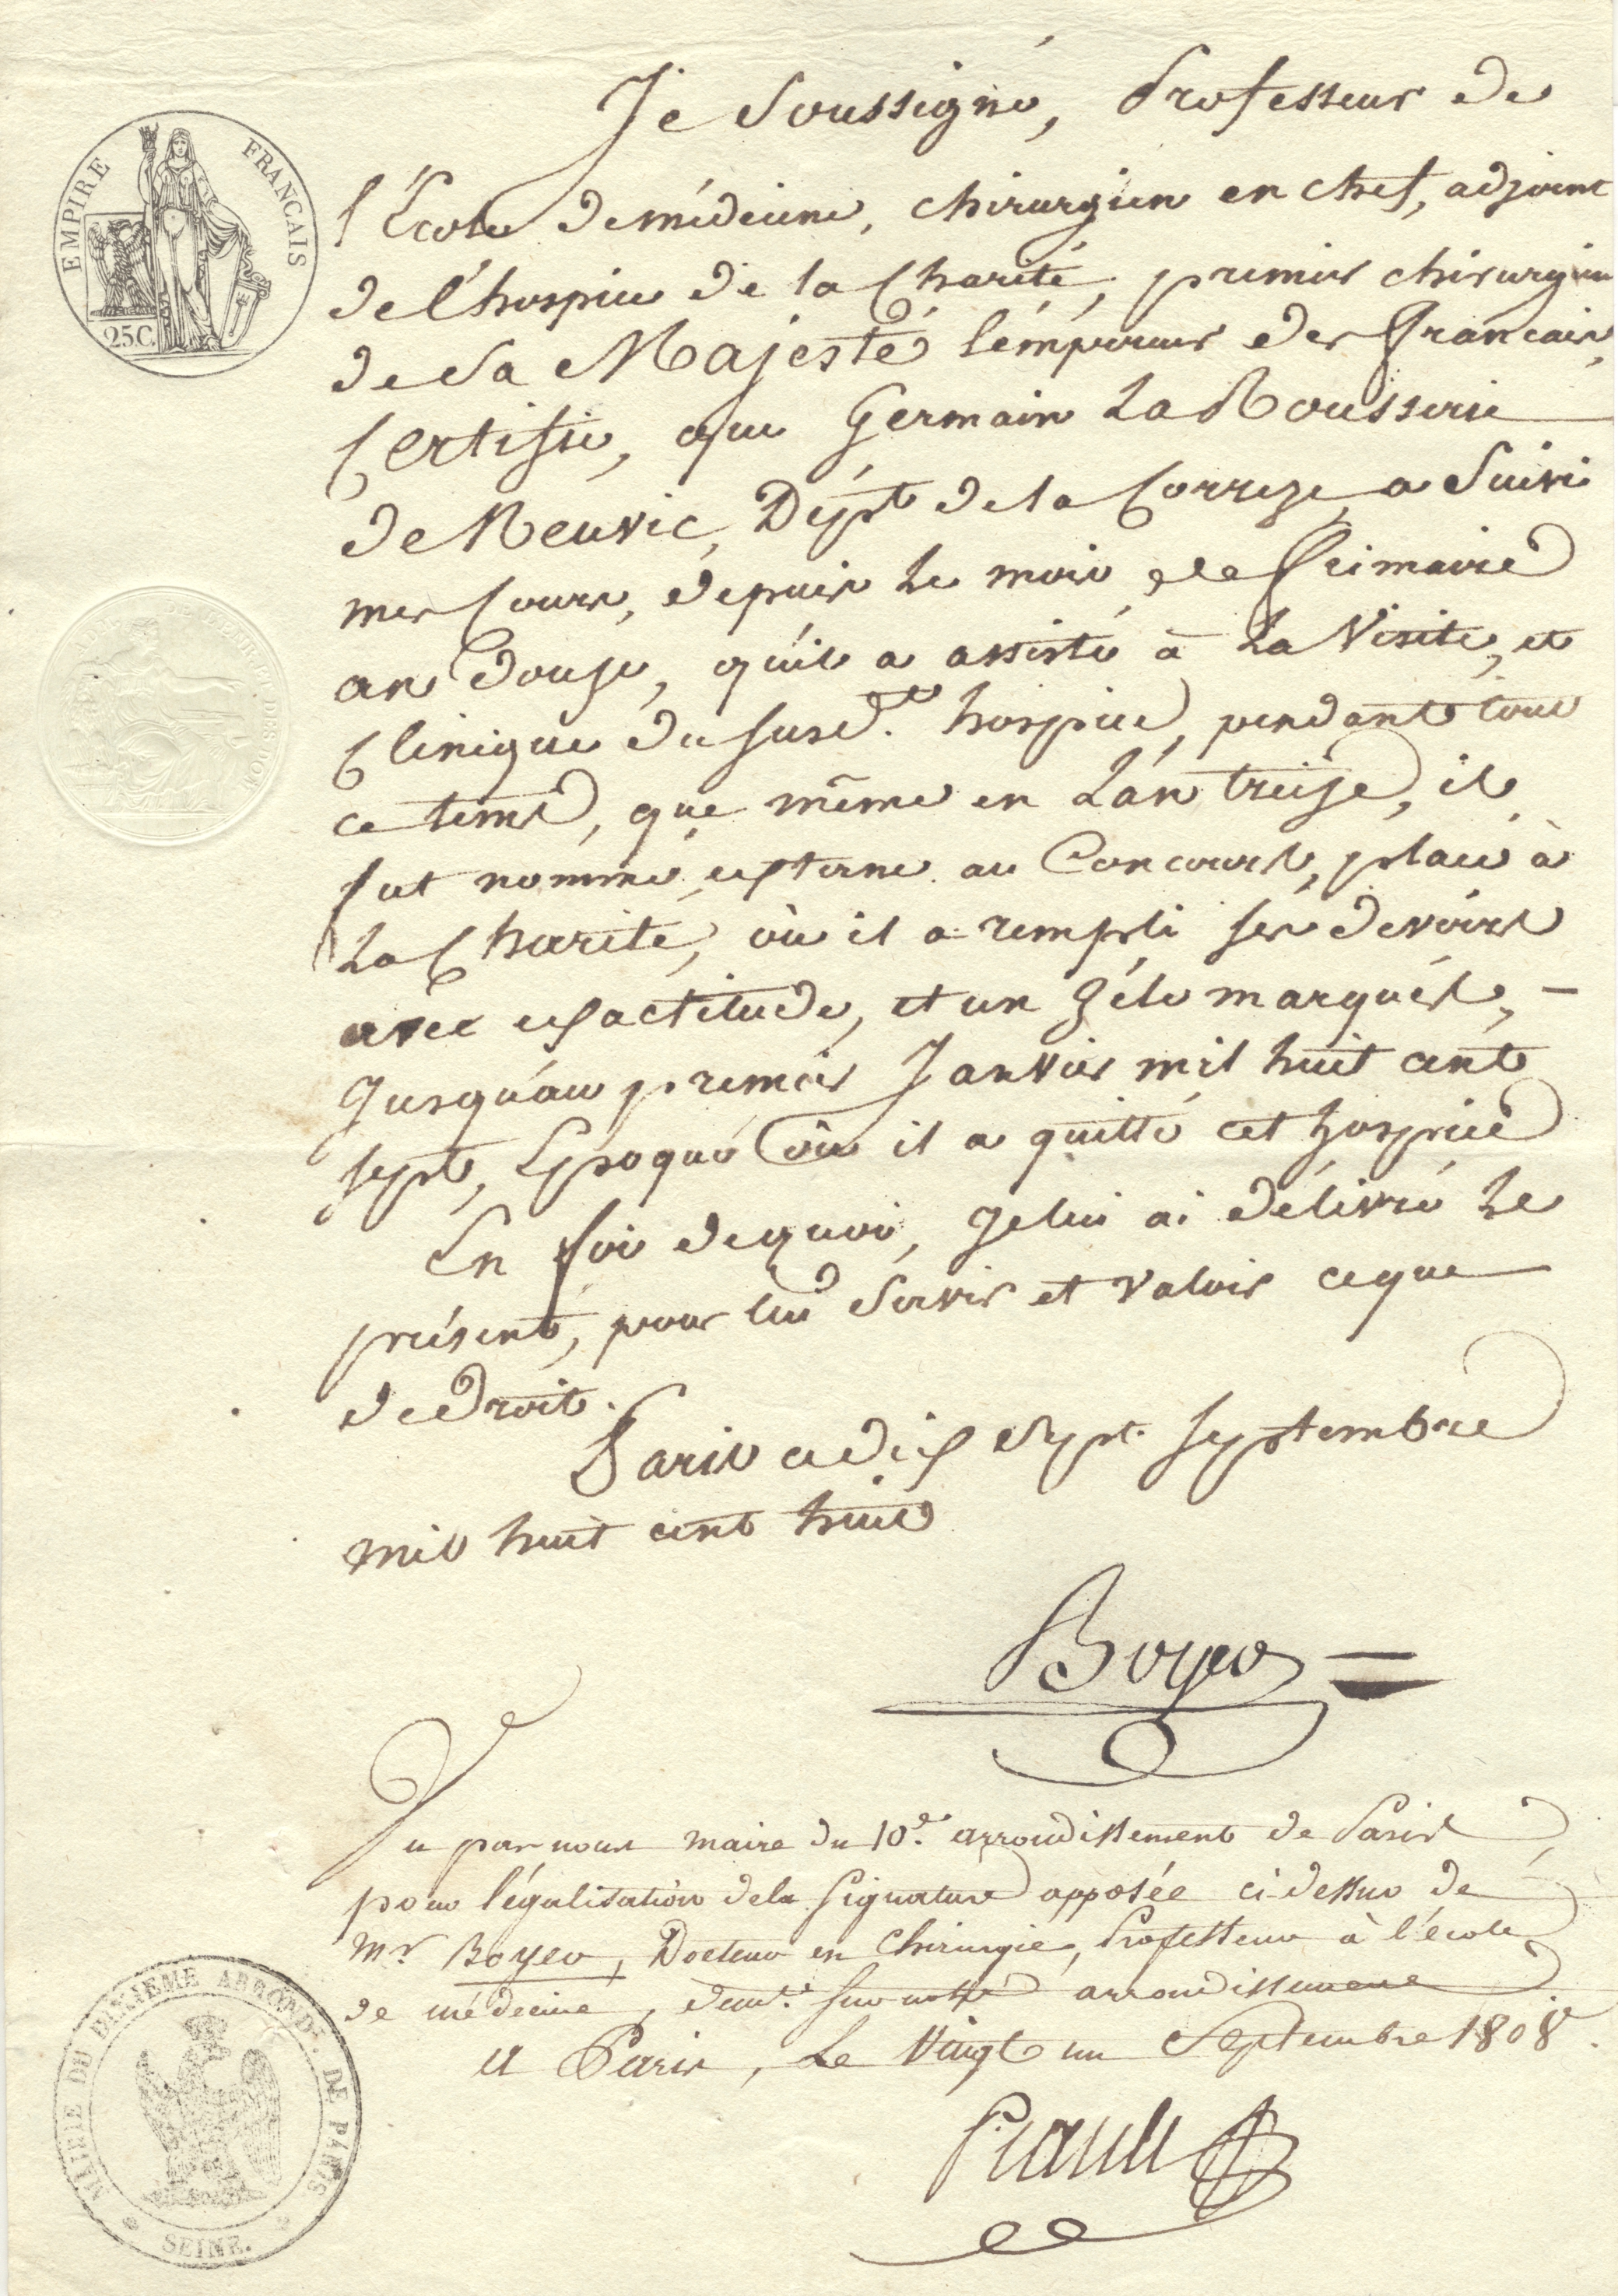 EMPIRE FRANÇAIS
25C.
Je Soussigné, Professeur de
l'École de médecine, chirurgien en chef, adjoint
de l'hospice de la Charité, premier chirurgien
de Sa Majesté l'empereur des français,
Certifie, que Germain La Rousserie
de Neuvic, Dépt de la Correze, a Suivi
mes Cours, depuis le mois de frimaire
an douze, qu'il a assisté à La Visite, et
Clinique du susd.t hospice, pendant tout
ce tems, que même en L'an treize, il
fut nommé externe au Concours, placé à
La Charité, où il a rempli ses devoirs
avec exactitude, et un zéle marqués, –
Jusqu'au premier Janvier mil huit cent
sept, Epoque où il a quitté cet hospice
En foi de quoi, Je lui ai délivré le
présent, pour lui Servir et valoir ce que
de Droit.
Paris ce dix Sept. septembre
mil huit cent huit
Boyer
Vu par nous maire du 10.e arrondissement de Paris
pour légalisation de la signature apposée ci dessus de
Mr. Boyer, Docteur en Chirurgie, Professeur à l'école
de médecine, demt. sur notre arrondissement
A Paris, Le Vingt un Septembre 1808.
Piault
MAIRIE DU DIXIEME ARROND.T DE PARIS
SEINE.